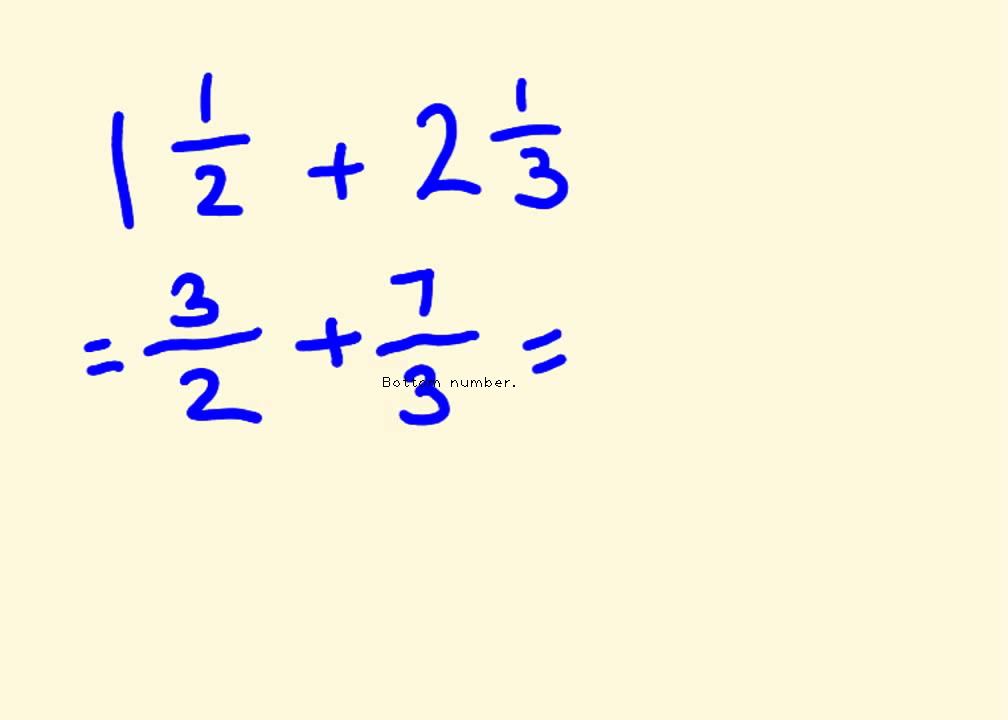 1 1/2 + 2 1/3
= 3/2 + 7/3 =
Bottom number.